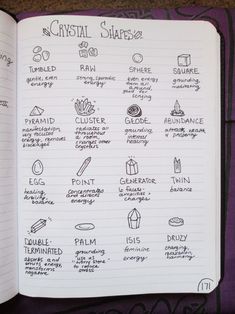 CRYSTAL SHAPES
TUMBLED
RAW
SPHERE
SQUARE
gentle, even
energy
strong, sporadic
energy
even energy
from all
around,
good for
scrying
grounding,
PYRAMID
CLUSTER
GEODE
ABUNDANCE
manifestation,
very focused
energy, removes
blockages
radiates
throughout
a room,
other
crystals
grounding,
internal
healing
attracts wealth,
prosperity
EGG
POINT
GENERATOR
TWIN
healing,
fertility,
balance
concentrates
and directs
energy
6 faces
energy
balance
DOUBLE-
TERMINATED
PALM
ISIS
DRUZY
absorbs and
emits energy,
transforms
negative
grounding
use as
"worry stone"
to reduce
stress
feminine
energy
charging,
relaxation,
harmony
171